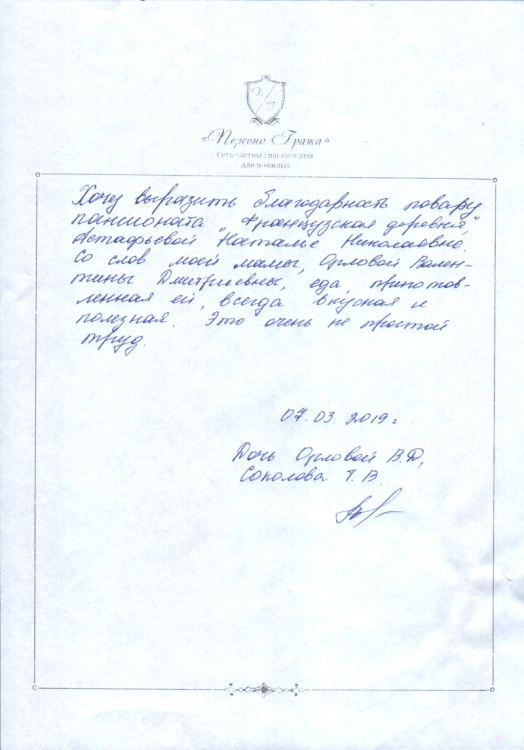 «Персона Гража»
Сеть частных пансионатов
для пожилых
Хочу выразить благодарность повару
пансионата "Французская деревня",
Астафьевой Наталье Николаевне.
Со слов моей мамы, Орловой Вален-
тины Дмитриевны, еда, приготов-
ленная ей, всегда вкусная и
полезная. Это очень не простой
труд.
07.03.2019 г
Дочь Орловой В.Д,
Соколова Т.В.